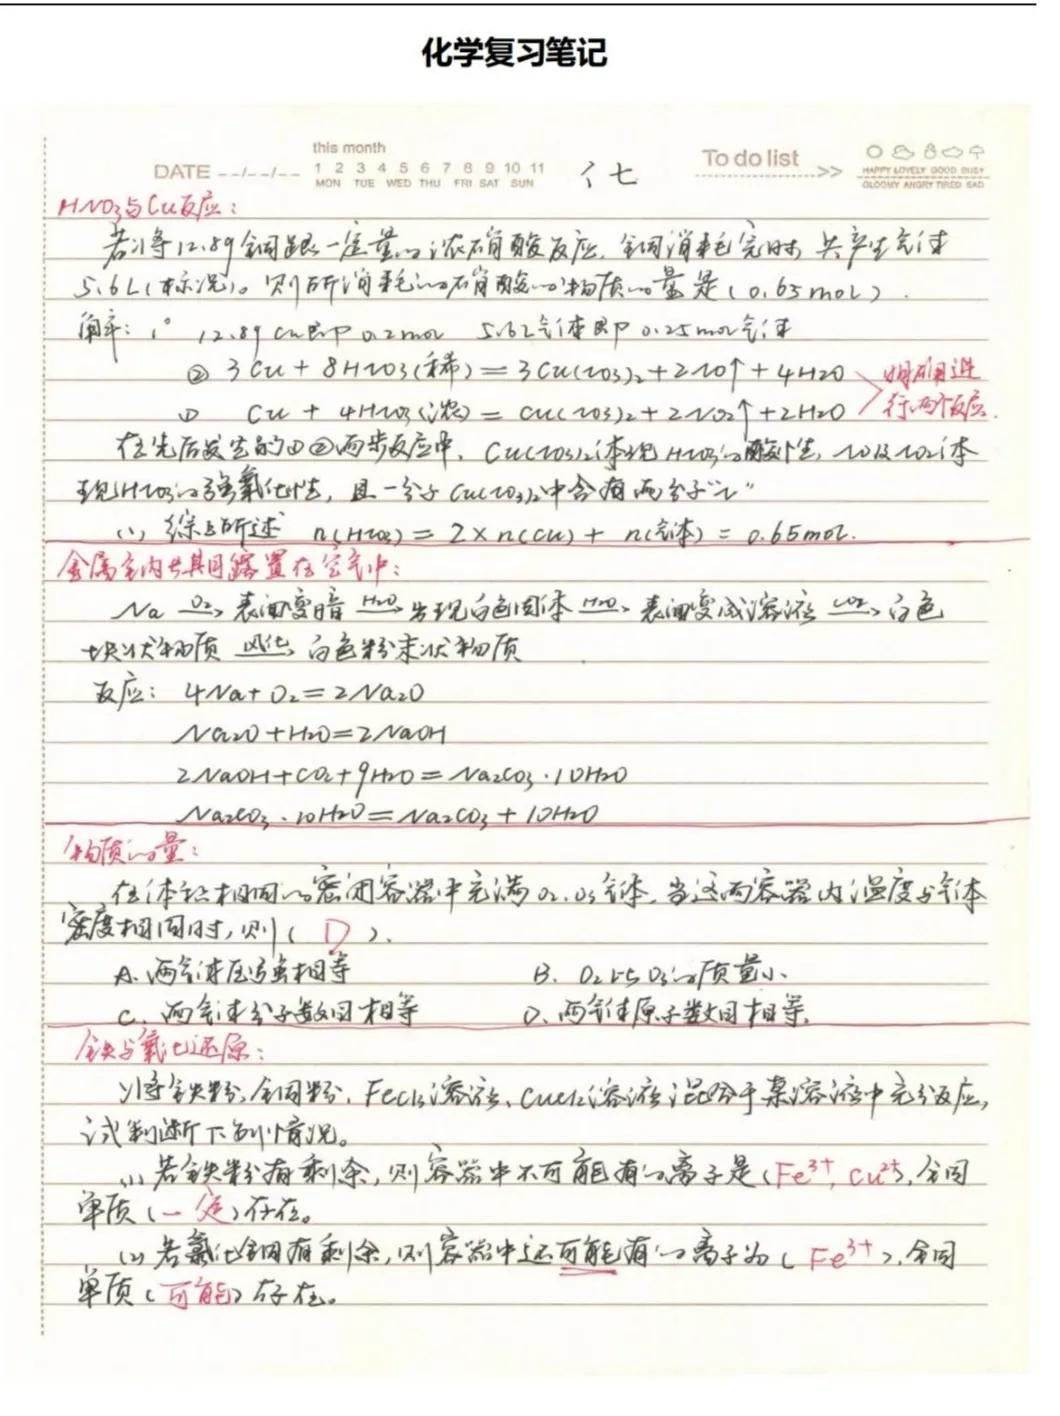 化学复习笔记
this month
DATE --/--/-- 1 2 3 4 5 6 7 8 9 10 11
MON TUE WED THU FRI SAT SUN
七
To do list >>
HAPPY LOVELY GOOD BUSY
GLOOMY ANGRY TIRED SAD
HNO3与Cu反应:
若将12.8g铜跟一定量的浓硝酸反应,铜消耗完时,共产生气体
5.6L(标况)。则所消耗的硝酸的物质的量是(0.65mol).
解: 1° 12.8g Cu即0.2mol 5.6L气体即0.25mol气体
② 3Cu + 8HNO3(稀) = 3Cu(NO3)2 + 2NO↑ + 4H2O
① Cu + 4HNO3(浓) = Cu(NO3)2 + 2NO2↑ + 2H2O
明确进
行两个反应.
在先后发生的①②两步反应中, Cu(NO3)2体现HNO3的酸性, NO及NO2体
现HNO3的强氧化性, 且一分子Cu(NO3)2中含有两分子“N”
综上所述 n(HNO3) = 2×n(Cu) + n(气体) = 0.65mol.
金属钠长期露置在空气中:
Na O2→ 表面变暗 H2O→ 出现白色固体 H2O→ 表面变成溶液 CO2→ 白色
块状物质 风化→ 白色粉末状物质
反应: 4Na+O2=2Na2O
Na2O+H2O=2NaOH
2NaOH+CO2+9H2O=Na2CO3·10H2O
Na2CO3·10H2O=Na2CO3+10H2O
物质的量:
在体积相同的密闭容器中充满O2、O3气体,当这两容器内温度与气体
密度相同时,则( D ).
A. 两气体压强相等 B. O2比O3的质量小
C. 两气体分子数目相等 D. 两气体原子数目相等.
铁与氧化还原:
将铁粉、铜粉、FeCl3溶液、CuCl2溶液混合于某溶液中充分反应,
试判断下列情况。
(1) 若铁粉有剩余,则容器中不可能有的离子是(Fe3+, Cu2+),铜
单质(一定)存在。
(2) 若氯化铜有剩余,则容器中还可能有的离子为(Fe3+),铜
单质(可能)存在。